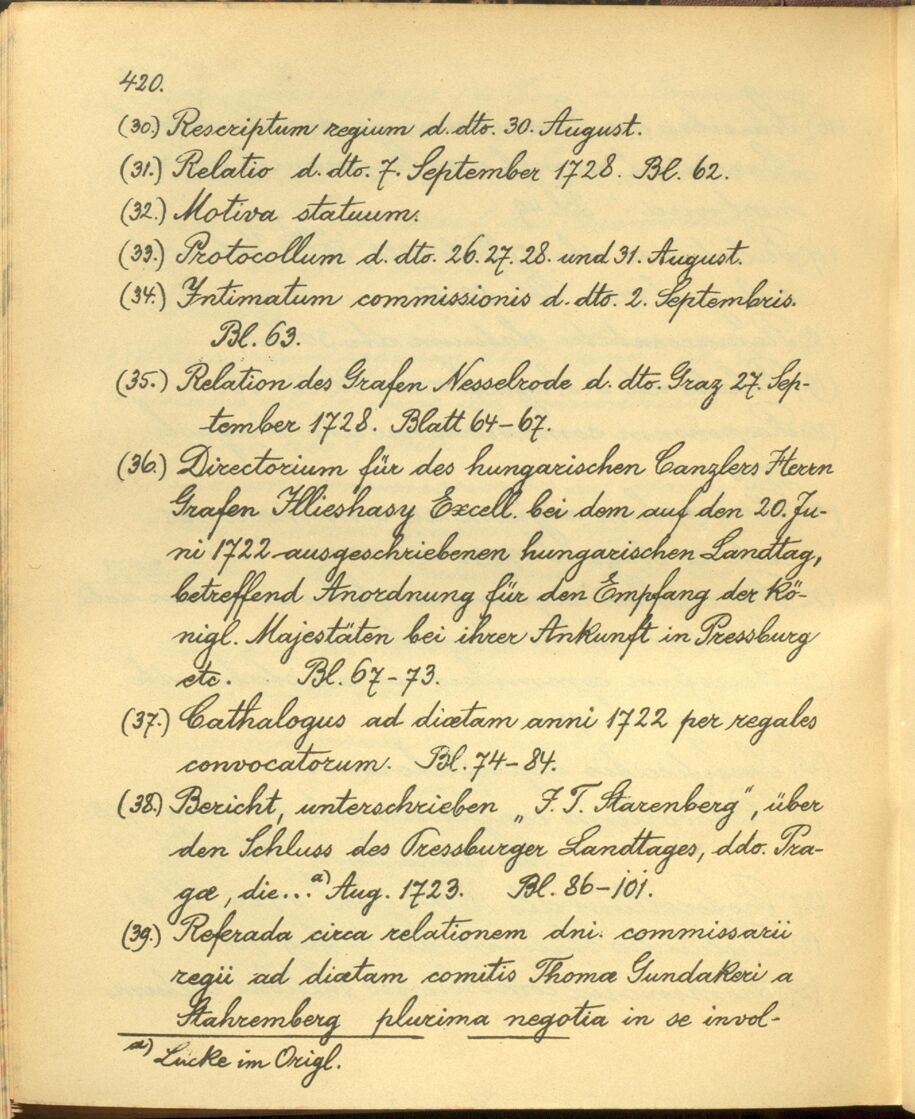 420.
(30.) Rescriptum regium d. dto. 30. August.
(31.) Relatio d. dto. 7. September 1728. Bl. 62.
(32.) Motiva statuum.
(33.) Protocollum d. dto. 26. 27. 28. und 31. August.
(34.) Intimatum commissionis d. dto. 2. Septembris.
Bl. 63.
(35.) Relation des Grafen Nesselrode d. dto. Graz 27. Sep-
tember 1728. Blatt 64–67.
(36.) Directorium für des hungarischen Canzlers Herrn
Grafen Illieshasy Excell. bei dem auf den 20. Ju-
ni 1722 ausgeschriebenen hungarischen Landtag,
betreffend Anordnung für den Empfang der Kö-
nigl. Majestäten bei ihrer Ankunft in Pressburg
etc. Bl. 67–73.
(37.) Cathalogus ad diætam anni 1722 per regales
convocatorum. Bl. 74–84.
(38.) Bericht, unterschrieben „F. T. Starenberg", über
den Schluss des Pressburger Landtages, ddo. Pra-
gæ, die...a) Aug. 1723. Bl. 86–101.
(39.) Referada circa relationem dni. commissarii
regii ad diætam comitis Thomæ Gundakeri a
Stahremberg plurima negotia in se invol-
a) Lücke im Origl.